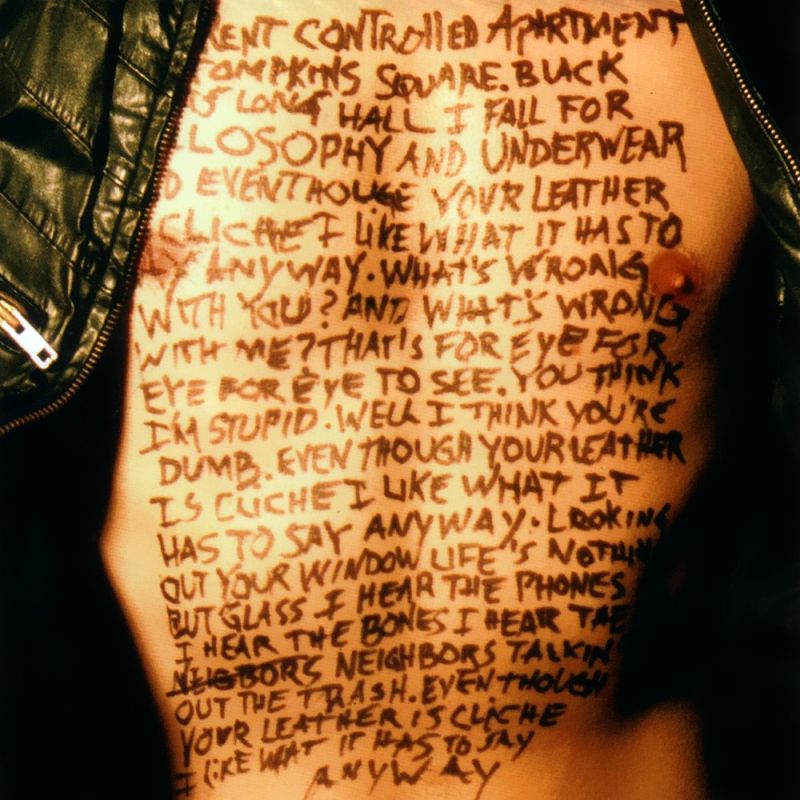 RENT CONTROLLED APARTMENT
TOMPKINS SQUARE. BLACK
LONG HALL I FALL FOR
LOSOPHY AND UNDERWEAR
D EVENTHOUGE YOUR LEATHER
CLICHE I LIKE WHAT IT HAS TO
AY ANYWAY. WHAT'S WRONG
WITH YOU? AND WHAT'S WRONG
WITH ME? THAT'S FOR EYE FOR
EYE FOR EYE TO SEE. YOU THINK
I'M STUPID. WELL I THINK YOU'RE
DUMB. EVEN THOUGH YOUR LEATHER
IS CLICHE I LIKE WHAT IT
HAS TO SAY ANYWAY. LOOKING
OUT YOUR WINDOW LIFE'S NOTHIN
BUT GLASS I HEAR THE PHONES
I HEAR THE BONES I HEAR THE
NEIGHBORS TALKIN'
OUT THE TRASH. EVEN THOUGH
YOUR LEATHER IS CLICHE
I LIKE WHAT IT HAS TO SAY
ANYWAY